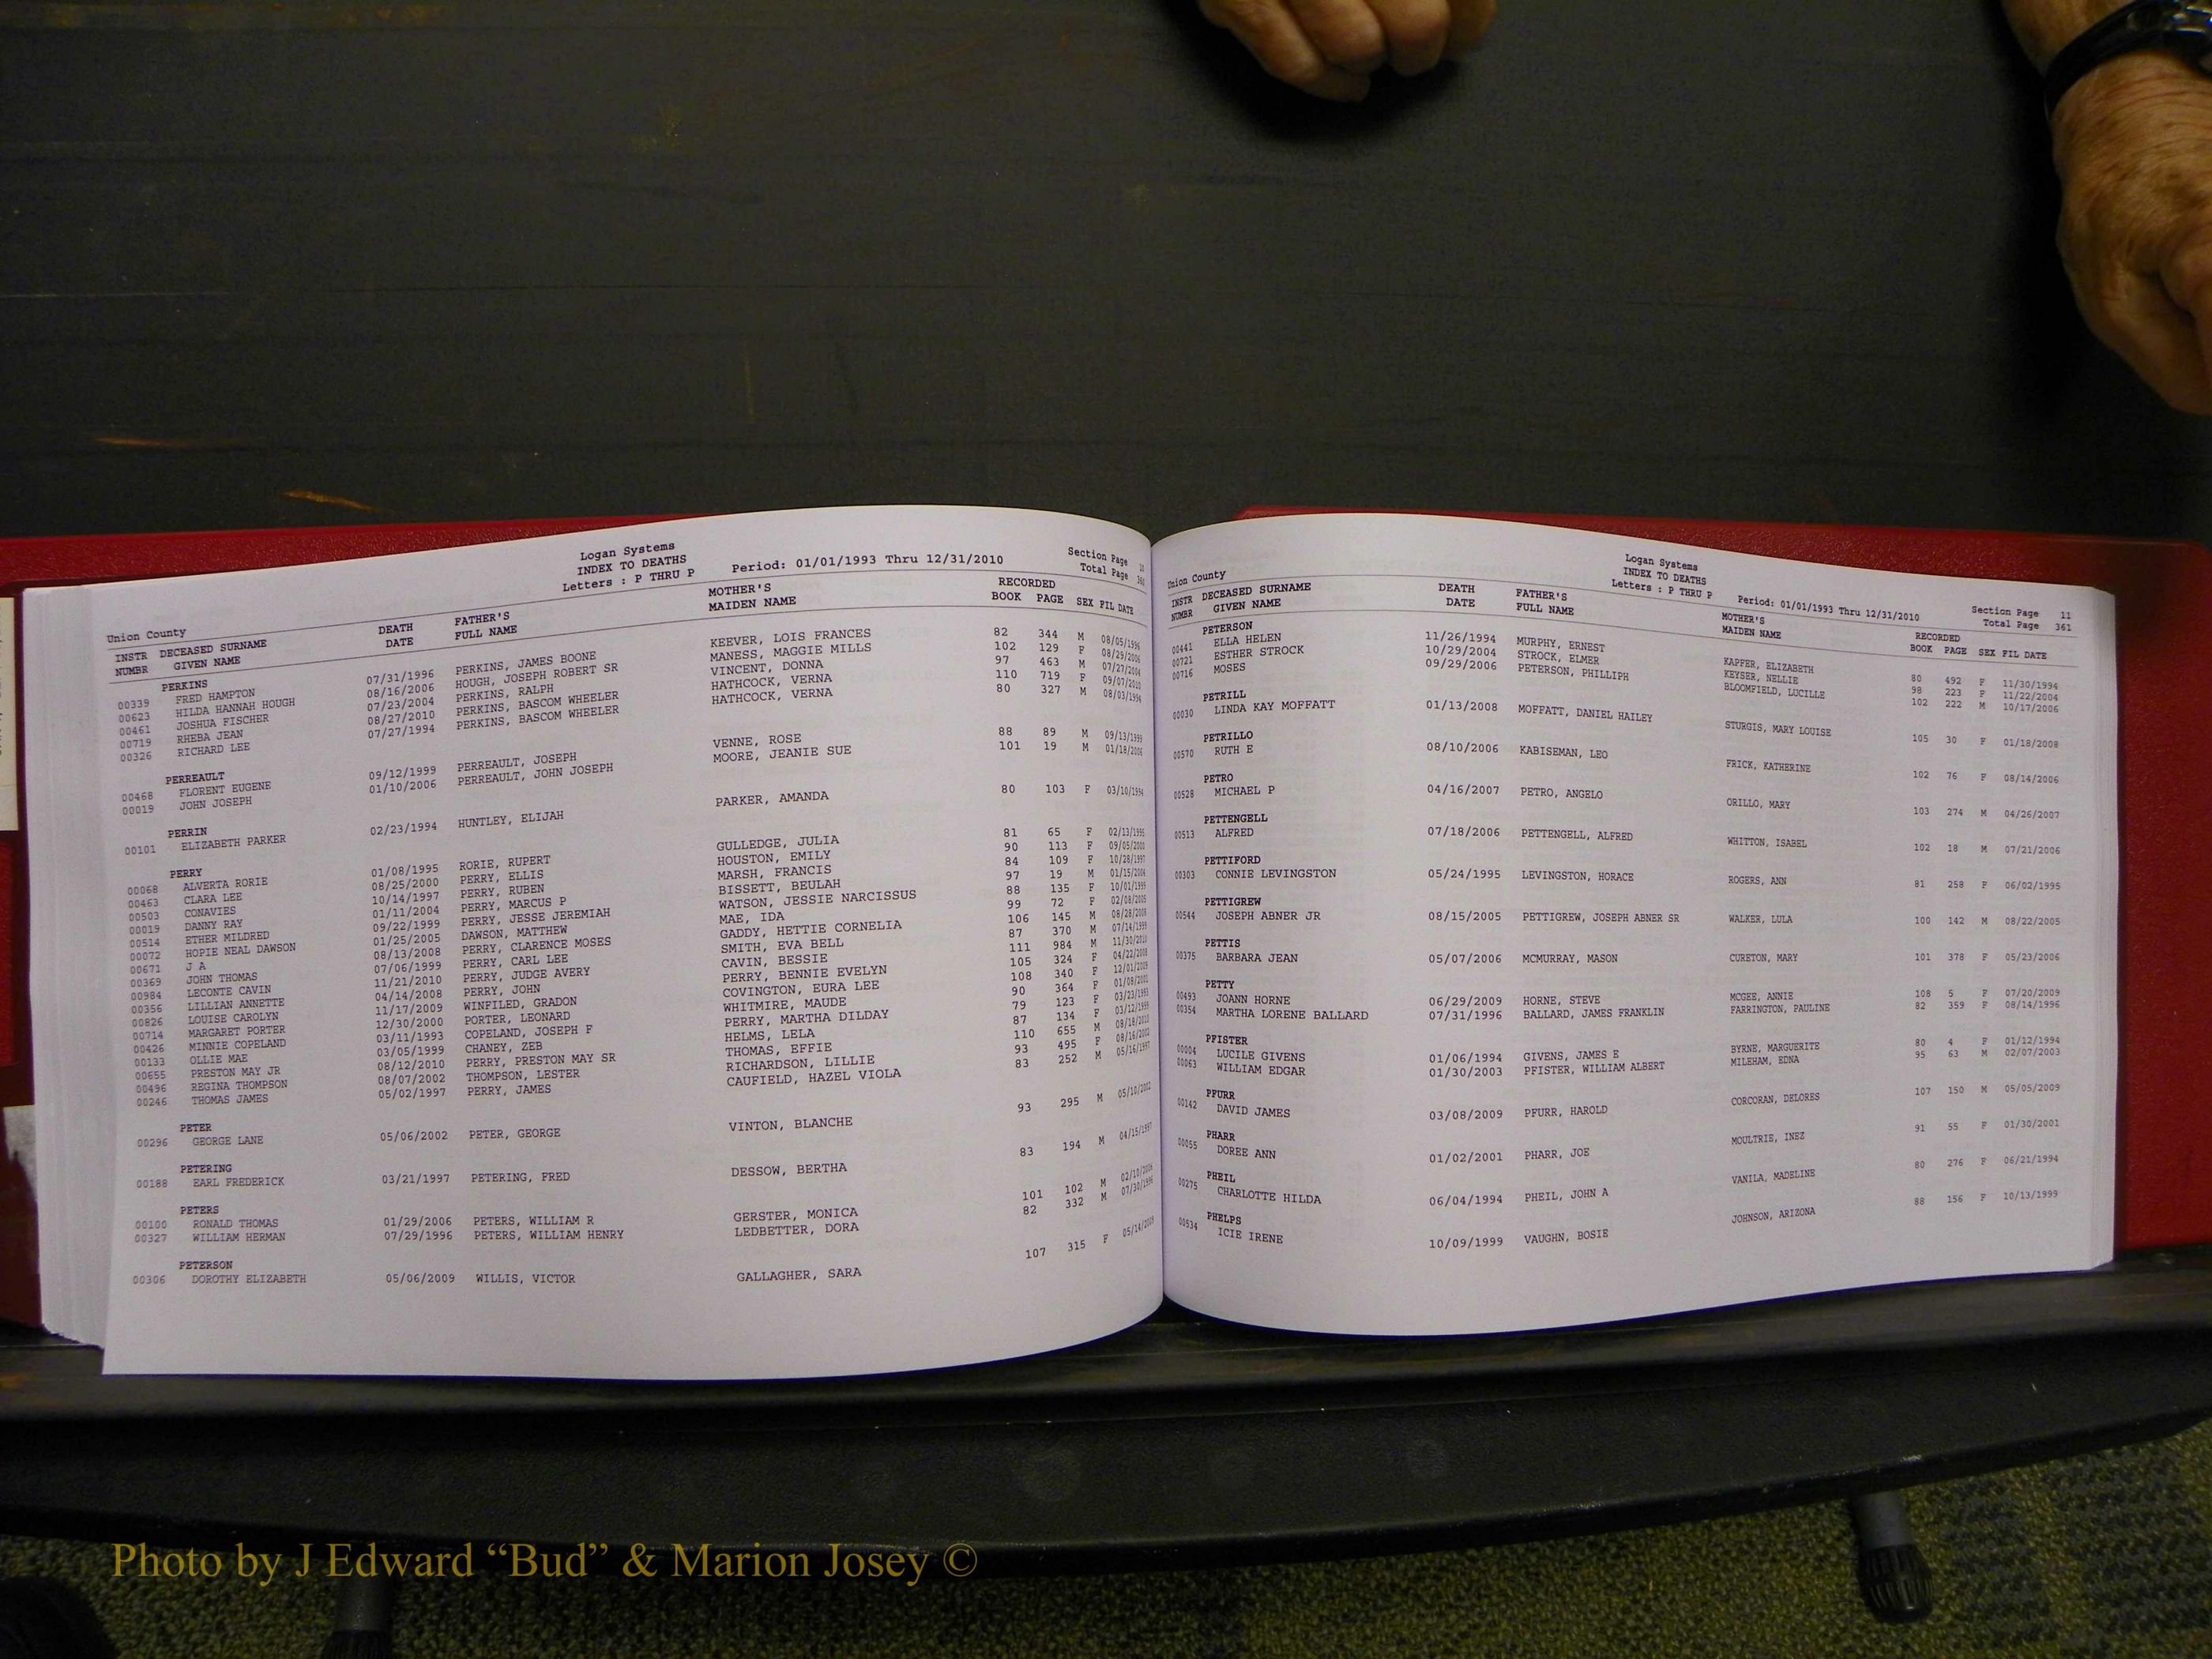 Logan Systems
INDEX TO DEATHS
Letters : P THRU P Period: 01/01/1993 Thru 12/31/2010
Section Page
Total Page
Union County
INSTR DECEASED SURNAME DEATH FATHER'S MOTHER'S RECORDED
NUMBR GIVEN NAME DATE FULL NAME MAIDEN NAME BOOK PAGE SEX FIL DATE
PERKINS
00339 FRED HAMPTON 07/31/1996 PERKINS, JAMES BOONE KEEVER, LOIS FRANCES 82 344 M 08/05/1996
00623 HILDA HANNAH HOUGH 08/16/2006 HOUGH, JOSEPH ROBERT SR MANESS, MAGGIE MILLS 102 129 F 08/25/2006
00461 JOSHUA FISCHER 07/23/2004 PERKINS, RALPH VINCENT, DONNA 97 463 M 07/27/2004
00719 RHEBA JEAN 08/27/2010 PERKINS, BASCOM WHEELER HATHCOCK, VERNA 110 719 F 09/07/2010
00326 RICHARD LEE 07/27/1994 PERKINS, BASCOM WHEELER HATHCOCK, VERNA 80 327 M 08/03/1994
PERREAULT
00468 FLORENT EUGENE 09/12/1999 PERREAULT, JOSEPH VENNE, ROSE 88 89 M 09/13/1999
00019 JOHN JOSEPH 01/10/2006 PERREAULT, JOHN JOSEPH MOORE, JEANIE SUE 101 19 M 01/18/2006
PERRIN
00101 ELIZABETH PARKER 02/23/1994 HUNTLEY, ELIJAH PARKER, AMANDA 80 103 F 03/10/1994
PERRY
00068 ALVERTA RORIE 01/08/1995 RORIE, RUPERT GULLEDGE, JULIA 81 65 F 02/13/1995
00463 CLARA LEE 08/25/2000 PERRY, ELLIS HOUSTON, EMILY 90 113 F 09/05/2000
00503 CONAVIES 10/14/1997 PERRY, RUBEN MARSH, FRANCIS 84 109 F 10/28/1997
00019 DANNY RAY 01/11/2004 PERRY, MARCUS P BISSETT, BEULAH 97 19 M 01/15/2004
00514 ETHER MILDRED 09/22/1999 PERRY, JESSE JEREMIAH WATSON, JESSIE NARCISSUS 88 135 F 10/01/1999
00072 HOPIE NEAL DAWSON 01/25/2005 DAWSON, MATTHEW MAE, IDA 99 72 F 02/08/2005
00671 J A 08/13/2008 PERRY, CLARENCE MOSES GADDY, HETTIE CORNELIA 106 145 M 08/28/2008
00369 JOHN THOMAS 07/06/1999 PERRY, CARL LEE SMITH, EVA BELL 87 370 M 07/14/1999
00984 LECONTE CAVIN 11/21/2010 PERRY, JUDGE AVERY CAVIN, BESSIE 111 984 M 11/30/2010
00356 LILLIAN ANNETTE 04/14/2008 PERRY, JOHN PERRY, BENNIE EVELYN 105 324 F 04/22/2008
00826 LOUISE CAROLYN 11/17/2009 WINFILED, GRADON COVINGTON, EURA LEE 108 340 F 12/01/2009
00714 MARGARET PORTER 12/30/2000 PORTER, LEONARD WHITMIRE, MAUDE 90 364 F 01/08/2001
00426 MINNIE COPELAND 03/11/1993 COPELAND, JOSEPH F PERRY, MARTHA DILDAY 79 123 F 03/23/1993
00133 OLLIE MAE 03/05/1999 CHANEY, ZEB HELMS, LELA 87 134 F 03/12/1999
00655 PRESTON MAY JR 08/12/2010 PERRY, PRESTON MAY SR THOMAS, EFFIE 110 655 M 08/18/2010
00496 REGINA THOMPSON 08/07/2002 THOMPSON, LESTER RICHARDSON, LILLIE 93 495 F 08/16/2002
00246 THOMAS JAMES 05/02/1997 PERRY, JAMES CAUFIELD, HAZEL VIOLA 83 252 M 05/16/1997
PETER
00296 GEORGE LANE 05/06/2002 PETER, GEORGE VINTON, BLANCHE 93 295 M 05/10/2002
PETERING
00188 EARL FREDERICK 03/21/1997 PETERING, FRED DESSOW, BERTHA 83 194 M 04/15/1997
PETERS
00100 RONALD THOMAS 01/29/2006 PETERS, WILLIAM R GERSTER, MONICA 101 102 M 02/10/2006
00327 WILLIAM HERMAN 07/29/1996 PETERS, WILLIAM HENRY LEDBETTER, DORA 82 332 M 07/30/1996
PETERSON
00306 DOROTHY ELIZABETH 05/06/2009 WILLIS, VICTOR GALLAGHER, SARA 107 315 F 05/14/2009
Logan Systems
INDEX TO DEATHS
Letters : P THRU P Period: 01/01/1993 Thru 12/31/2010
Section Page 11
Total Page 361
Union County
INSTR DECEASED SURNAME DEATH FATHER'S MOTHER'S RECORDED
NUMBR GIVEN NAME DATE FULL NAME MAIDEN NAME BOOK PAGE SEX FIL DATE
PETERSON
00441 ELLA HELEN 11/26/1994 MURPHY, ERNEST KAPFER, ELIZABETH 80 492 F 11/30/1994
00721 ESTHER STROCK 10/29/2004 STROCK, ELMER KEYSER, NELLIE 98 223 F 11/22/2004
00716 MOSES 09/29/2006 PETERSON, PHILLIPH BLOOMFIELD, LUCILLE 102 222 M 10/17/2006
PETRILL
00030 LINDA KAY MOFFATT 01/13/2008 MOFFATT, DANIEL HAILEY STURGIS, MARY LOUISE 105 30 F 01/18/2008
PETRILLO
00570 RUTH E 08/10/2006 KABISEMAN, LEO FRICK, KATHERINE 102 76 F 08/14/2006
PETRO
00528 MICHAEL P 04/16/2007 PETRO, ANGELO ORILLO, MARY 103 274 M 04/26/2007
PETTENGELL
00513 ALFRED 07/18/2006 PETTENGELL, ALFRED WHITTON, ISABEL 102 18 M 07/21/2006
PETTIFORD
00303 CONNIE LEVINGSTON 05/24/1995 LEVINGSTON, HORACE ROGERS, ANN 81 258 F 06/02/1995
PETTIGREW
00544 JOSEPH ABNER JR 08/15/2005 PETTIGREW, JOSEPH ABNER SR WALKER, LULA 100 142 M 08/22/2005
PETTIS
00375 BARBARA JEAN 05/07/2006 MCMURRAY, MASON CURETON, MARY 101 378 F 05/23/2006
PETTY
00493 JOANN HORNE 06/29/2009 HORNE, STEVE MCGEE, ANNIE 108 5 F 07/20/2009
00354 MARTHA LORENE BALLARD 07/31/1996 BALLARD, JAMES FRANKLIN FARRINGTON, PAULINE 82 359 F 08/14/1996
PFISTER
00004 LUCILE GIVENS 01/06/1994 GIVENS, JAMES E BYRNE, MARGUERITE 80 4 F 01/12/1994
00063 WILLIAM EDGAR 01/30/2003 PFISTER, WILLIAM ALBERT MILEHAM, EDNA 95 63 M 02/07/2003
PFURR
00142 DAVID JAMES 03/08/2009 PFURR, HAROLD CORCORAN, DELORES 107 150 M 05/05/2009
PHARR
00055 DOREE ANN 01/02/2001 PHARR, JOE MOULTRIE, INEZ 91 55 F 01/30/2001
PHEIL
00275 CHARLOTTE HILDA 06/04/1994 PHEIL, JOHN A VANILA, MADELINE 80 276 F 06/21/1994
PHELPS
00534 ICIE IRENE 10/09/1999 VAUGHN, BOSIE JOHNSON, ARIZONA 88 156 F 10/13/1999
Photo by J Edward “Bud” & Marion Josey ©